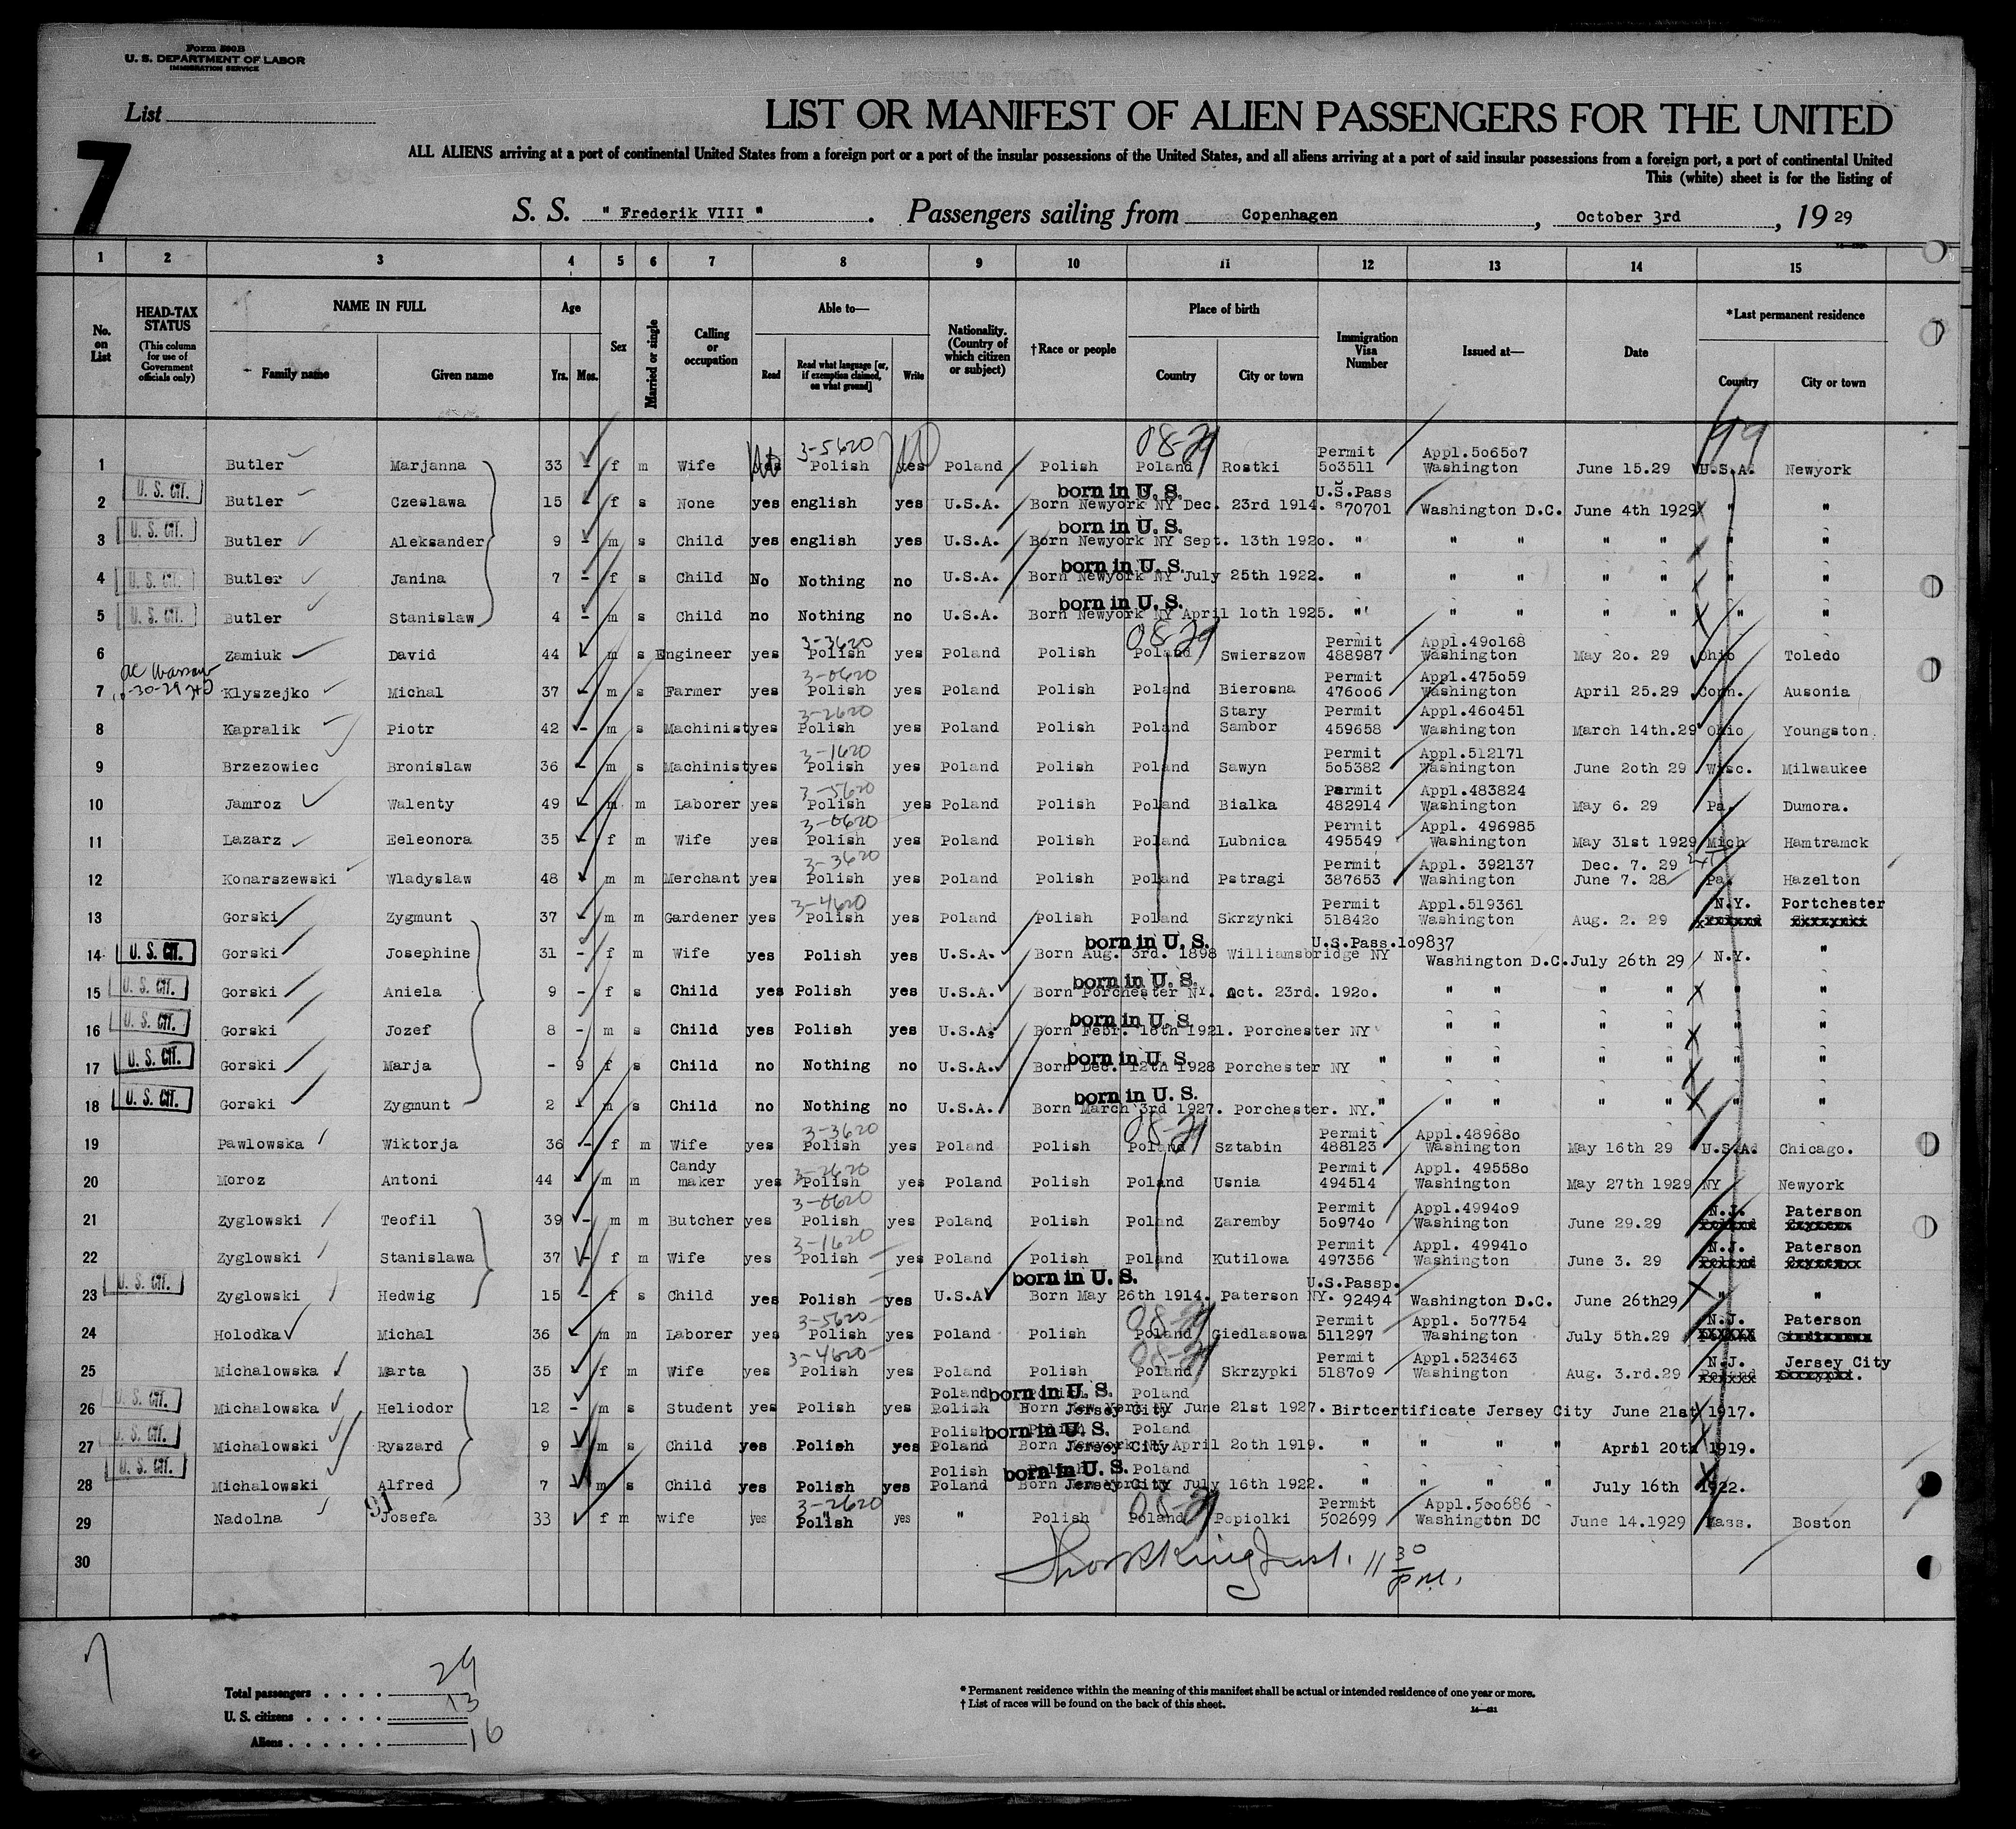 Form 500B
U. S. DEPARTMENT OF LABOR
IMMIGRATION SERVICE
List
7
LIST OR MANIFEST OF ALIEN PASSENGERS FOR THE UNITED
ALL ALIENS arriving at a port of continental United States from a foreign port or a port of the insular possessions of the United States, and all aliens arriving at a port of said insular possessions from a foreign port, a port of continental United
This (white) sheet is for the listing of
S. S. " Frederik VIII " . Passengers sailing from Copenhagen , October 3rd , 19 29
1 2 3 4 5 6 7 8 9 10 11 12 13 14 15
No. on List HEAD-TAX STATUS (This column for use of Government officials only) NAME IN FULL Family name Given name Age Yrs. Mos. Sex Married or single Calling or occupation Able to— Read Read what language [or, if exemption claimed, on what ground] Write Nationality. (Country of which citizen or subject) †Race or people Place of birth Country City or town Immigration Visa Number Issued at— Date *Last permanent residence Country City or town
3-5620 08-29 Permit Appl.506507 99
1 Butler Marjanna 33 - f m Wife yes Polish yes Poland Polish Poland Rostki 503511 Washington June 15.29 U.S.A. Newyork
U. S. CIT. born in U. S. U.S.Pass
2 Butler Czeslawa 15 - f s None yes english yes U.S.A. Born Newyork NY Dec. 23rd 1914. 70701 Washington D.C. June 4th 1929 " "
U. S. CIT. born in U. S.
3 Butler Aleksander 9 - m s Child yes english yes U.S.A. Born Newyork NY Sept. 13th 1920. " " " " " " "
U. S. CIT. born in U. S.
4 Butler Janina 7 - f s Child No Nothing no U.S.A. Born Newyork NY July 25th 1922. " " " " " " "
U. S. CIT. born in U. S.
5 Butler Stanislaw 4 - m s Child no Nothing no U.S.A. Born Newyork NY April 10th 1925. " " " " " " "
3-3620 08-29 Permit Appl.490168
6 Zamiuk David 44 m s Engineer yes Polish yes Poland Polish Poland Swierszow 488987 Washington May 20. 29 Ohio Toledo
Warsaw 3-0620 Permit Appl.475059
7 Klyszejko Michal 37 - m s Farmer yes Polish yes Poland Polish Poland Bierosna 476006 Washington April 25.29 Conn. Ausonia
3-2620 Stary Permit Appl.460451
8 Kapralik Piotr 42 - m s Machinist yes Polish yes Poland Polish Poland Sambor 459658 Washington March 14th.29 Ohio Youngston
3-1620 Permit Appl.512171
9 Brzezowiec Bronislaw 36 - m s Machinist yes Polish yes Poland Polish Poland Sawyn 505382 Washington June 20th 29 Wisc. Milwaukee
3-5620 Permit Appl.483824
10 Jamroz Walenty 49 m m Laborer yes Polish yes Poland Polish Poland Bialka 482914 Washington May 6. 29 Pa. Dumora.
3-0620 Permit Appl. 496985
11 Lazarz Eeleonora 35 f m Wife yes Polish yes Poland Polish Poland Lubnica 495549 Washington May 31st 1929 Mich Hamtramck
3-3620 Permit Appl. 392137 Dec. 7. 29
12 Konarszewski Wladyslaw 48 m m Merchant yes Polish yes Poland Polish Poland Pstragi 387653 Washington June 7. 28 Pa. Hazelton
3-4620 Permit Appl.519361 N.Y. Portchester
13 Gorski Zygmunt 37 m m Gardener yes Polish yes Poland Polish Poland Skrzynki 518420 Washington Aug. 2. 29
U. S. CIT. born in U. S. U.S.Pass.109837
14 Gorski Josephine 31 - f m Wife yes Polish yes U.S.A. Born Aug. 3rd. 1898 Williamsbridge NY Washington D.C. July 26th 29 N.Y. "
U. S. CIT. born in U. S.
15 Gorski Aniela 9 - f s Child yes Polish yes U.S.A. Born Porchester NY. Oct. 23rd. 1920. " " " " " "
U. S. CIT. born in U. S.
16 Gorski Jozef 8 - m s Child yes Polish yes U.S.A. Born Febr. 18th 1921. Porchester NY " " " " " "
U. S. CIT. born in U. S.
17 Gorski Marja - 9 f s Child no Nothing no U.S.A. Born Dec. 12th 1928 Porchester NY " " " " " " "
U. S. CIT. born in U. S.
18 Gorski Zygmunt 2 - m s Child no Nothing no U.S.A. Born March 3rd 1927. Porchester. NY. " " " " " " "
3-3620 08-29 Permit Appl.489680
19 Pawlowska Wiktorja 36 - f m Wife yes Polish yes Poland Polish Poland Sztabin 488123 Washington May 16th 29 U.S.A. Chicago.
Candy 3-2620 Permit Appl. 495580
20 Moroz Antoni 44 m m maker yes Polish yes Poland Polish Poland Usnia 494514 Washington May 27th 1929 NY Newyork
3-0620 Permit Appl.499409 N.J. Paterson
21 Zyglowski Teofil 39 - m m Butcher yes Polish yes Poland Polish Poland Zaremby 509740 Washington June 29.29
3-1620 Permit Appl. 499410 N.J. Paterson
22 Zyglowski Stanislawa 37 - f m Wife yes Polish yes Poland Polish Poland Kutilowa 497356 Washington June 3. 29
U. S. CIT. born in U. S. U.S.Passp.
23 Zyglowski Hedwig 15 - f s Child yes Polish yes U.S.A Born May 26th 1914. Paterson NY. 92494 Washington D.C. June 26th29 " "
3-5620 08-29 Permit Appl. 507754 N.J. Paterson
24 Holodka Michal 36 m m Laborer yes Polish yes Poland Polish Poland Giedlasowa 511297 Washington July 5th.29
3-4620 08-29 Permit Appl.523463 N.J. Jersey City
25 Michalowska Marta 35 f m Wife yes Polish yes Poland Polish Poland Skrzypki 518709 Washington Aug. 3.rd.29
U. S. CIT. Poland born in U. S. Poland
26 Michalowska Heliodor 12 - m s Student yes Polish yes Polish Born New York NY Jersey City June 21st 1927. Birtcertificate Jersey City June 21st 1917.
U. S. CIT. Polish born in U. S. Poland
27 Michalowski Ryszard 9 - m s Child yes Polish yes Poland Born Newyork NY Jersey City April 20th 1919. " " " " April 20th 1919.
U. S. CIT. Polish born in U. S. Poland
28 Michalowski Alfred 7 - m s Child yes Polish yes Poland Born Jersey City July 16th 1922. " " " " July 16th 1922.
91 3-2620 08-29 Permit Appl.500686
29 Nadolna Josefa 33 f m wife yes Polish yes " Polish Poland Popiolki 502699 Washington DC June 14.1929 Mass. Boston
30
11 30 P.M.
7
Total passengers . . . . 29
U. S. citizens . . . . . 13
Aliens . . . . . . 16
* Permanent residence within the meaning of this manifest shall be actual or intended residence of one year or more.
† List of races will be found on the back of this sheet.